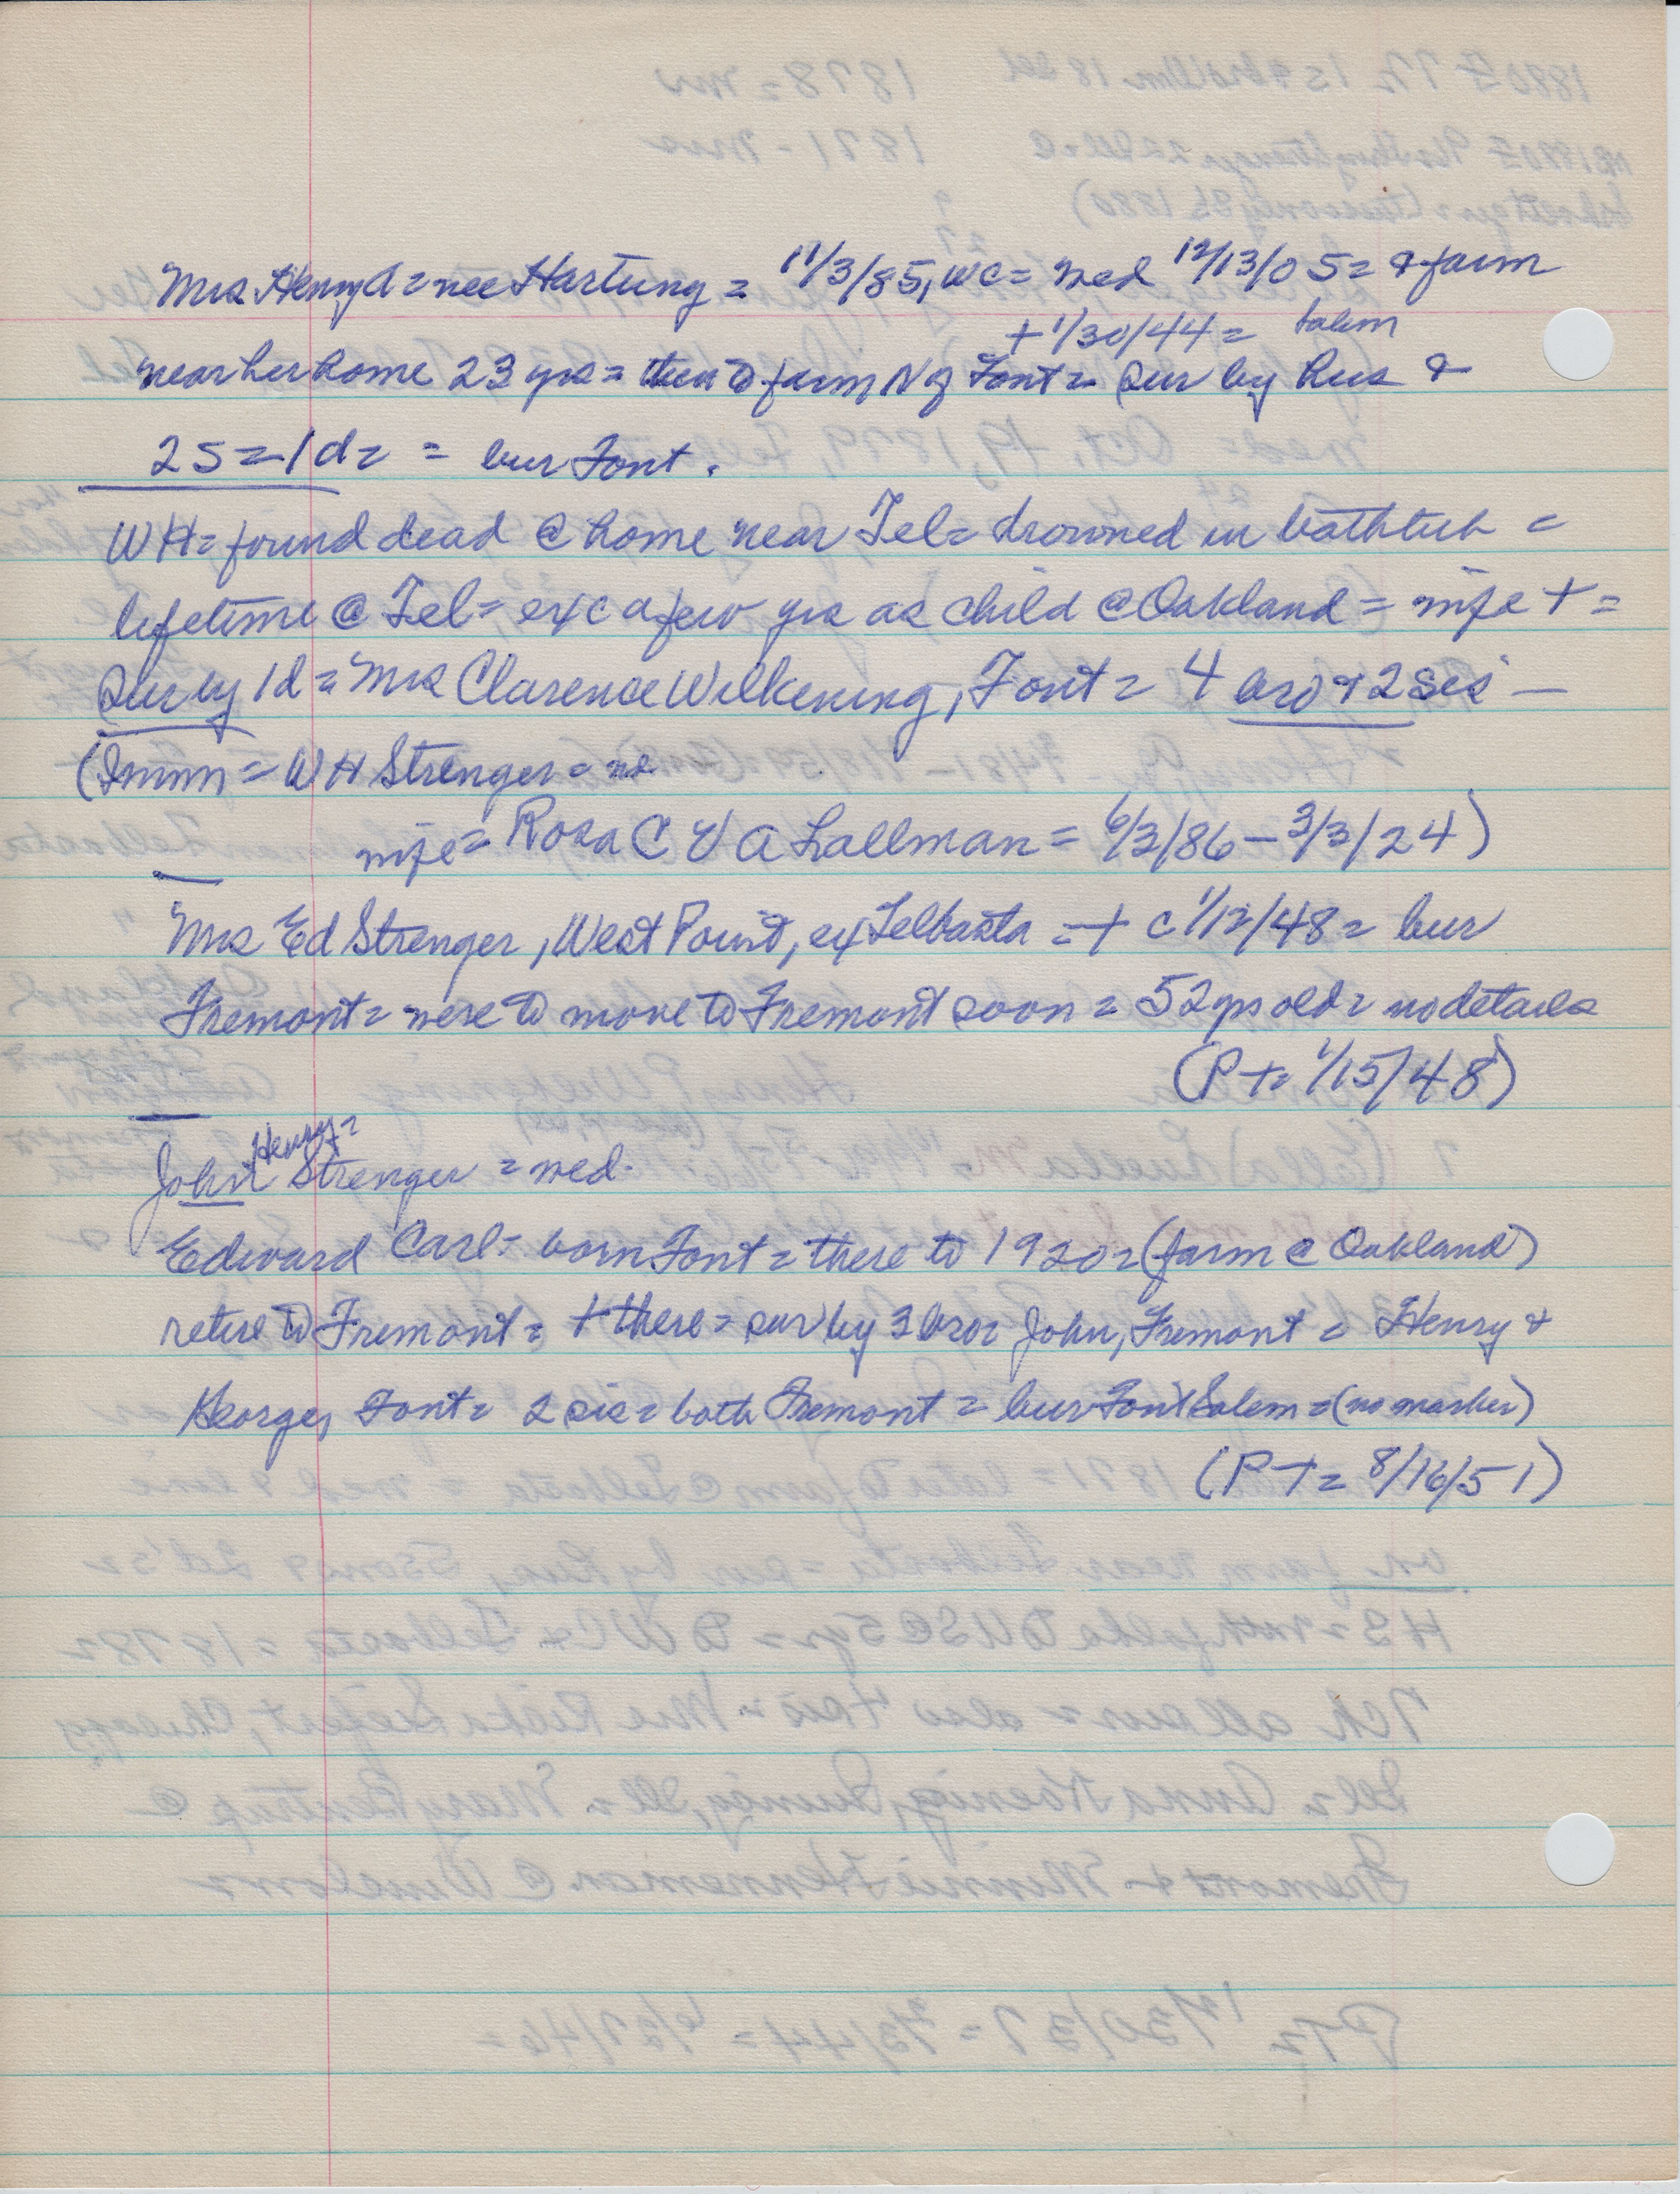 Mrs Henry A = nee Hartung = 11/3/85, WC = med 12/13/05 = & farm
+ 1/30/44 = Salem
near her home 23 yrs = then to farm N of Font = sur by hus &
2s = 1d = = bur Font.
WH = found dead @ home near Tel = drowned in bathtub =
lifetime @ Tel = exc a few yrs as child @ Oakland = wife + =
sur by 1d = Mrs Clarence Wilkening, Font = 4 bro & 2 sis —
(Imm = WH Strenger = no
wife = Rosa C V A Lallman = 6/3/86 – 3/3/24)
Mrs Ed Strenger, West Point, ex Telbasta = + c 1/12/48 = bur
Fremont = were to move to Fremont soon = 52 yrs old = no details
(P+ = 1/15/48)
Henry =
John Strenger = med.
Edward Carl = born Font = there to 1920 = (farm @ Oakland)
retire to Fremont = + there = sur by 3 bro = John, Fremont = Henry &
George, Font = 2 sis = both Fremont = bur Font Salem = (no marker)
(P+ = 8/16/51)